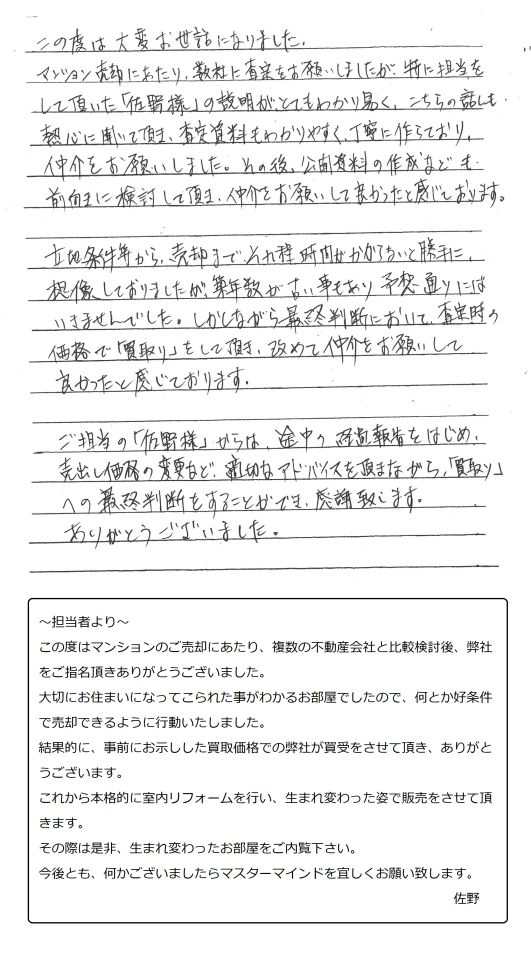 この度は大変お世話になりました。
マンション売却にあたり、数社に査定をお願いしましたが、特に担当を
して頂いた「佐野様」の説明がとてもわかり易く、こちらの話しも
熱心に聞いて頂き、査定資料もわかりやすく、丁寧に作られており、
仲介をお願いしました。その後、公開資料の作成なども
前向きに検討して頂き、仲介をお願いして良かったと感じております。
立地条件等から、売却まで、それ程時間がかからないと勝手に、
想像しておりましたが、築年数が古い事もあり予想通りには
いきませんでした。しかしながら最終判断において、査定時の
価格で「買取り」をして頂き、改めて仲介をお願いして
良かったと感じております。
ご担当の「佐野様」からは、途中の経過報告をはじめ、
売出し価格の変更など、適切なアドバイスを頂きながら、「買取り」
への最終判断をすることができ、感謝致します。
ありがとうございました。
～担当者より～
この度はマンションのご売却にあたり、複数の不動産会社と比較検討後、弊社
をご指名頂きありがとうございました。
大切にお住まいになってこられた事がわかるお部屋でしたので、何とか好条件
で売却できるように行動いたしました。
結果的に、事前にお示しした買取価格での弊社が買受をさせて頂き、ありがと
うございます。
これから本格的に室内リフォームを行い、生まれ変わった姿で販売をさせて頂
きます。
その際は是非、生まれ変わったお部屋をご内覧下さい。
今後とも、何かございましたらマスターマインドを宜しくお願い致します。
佐野